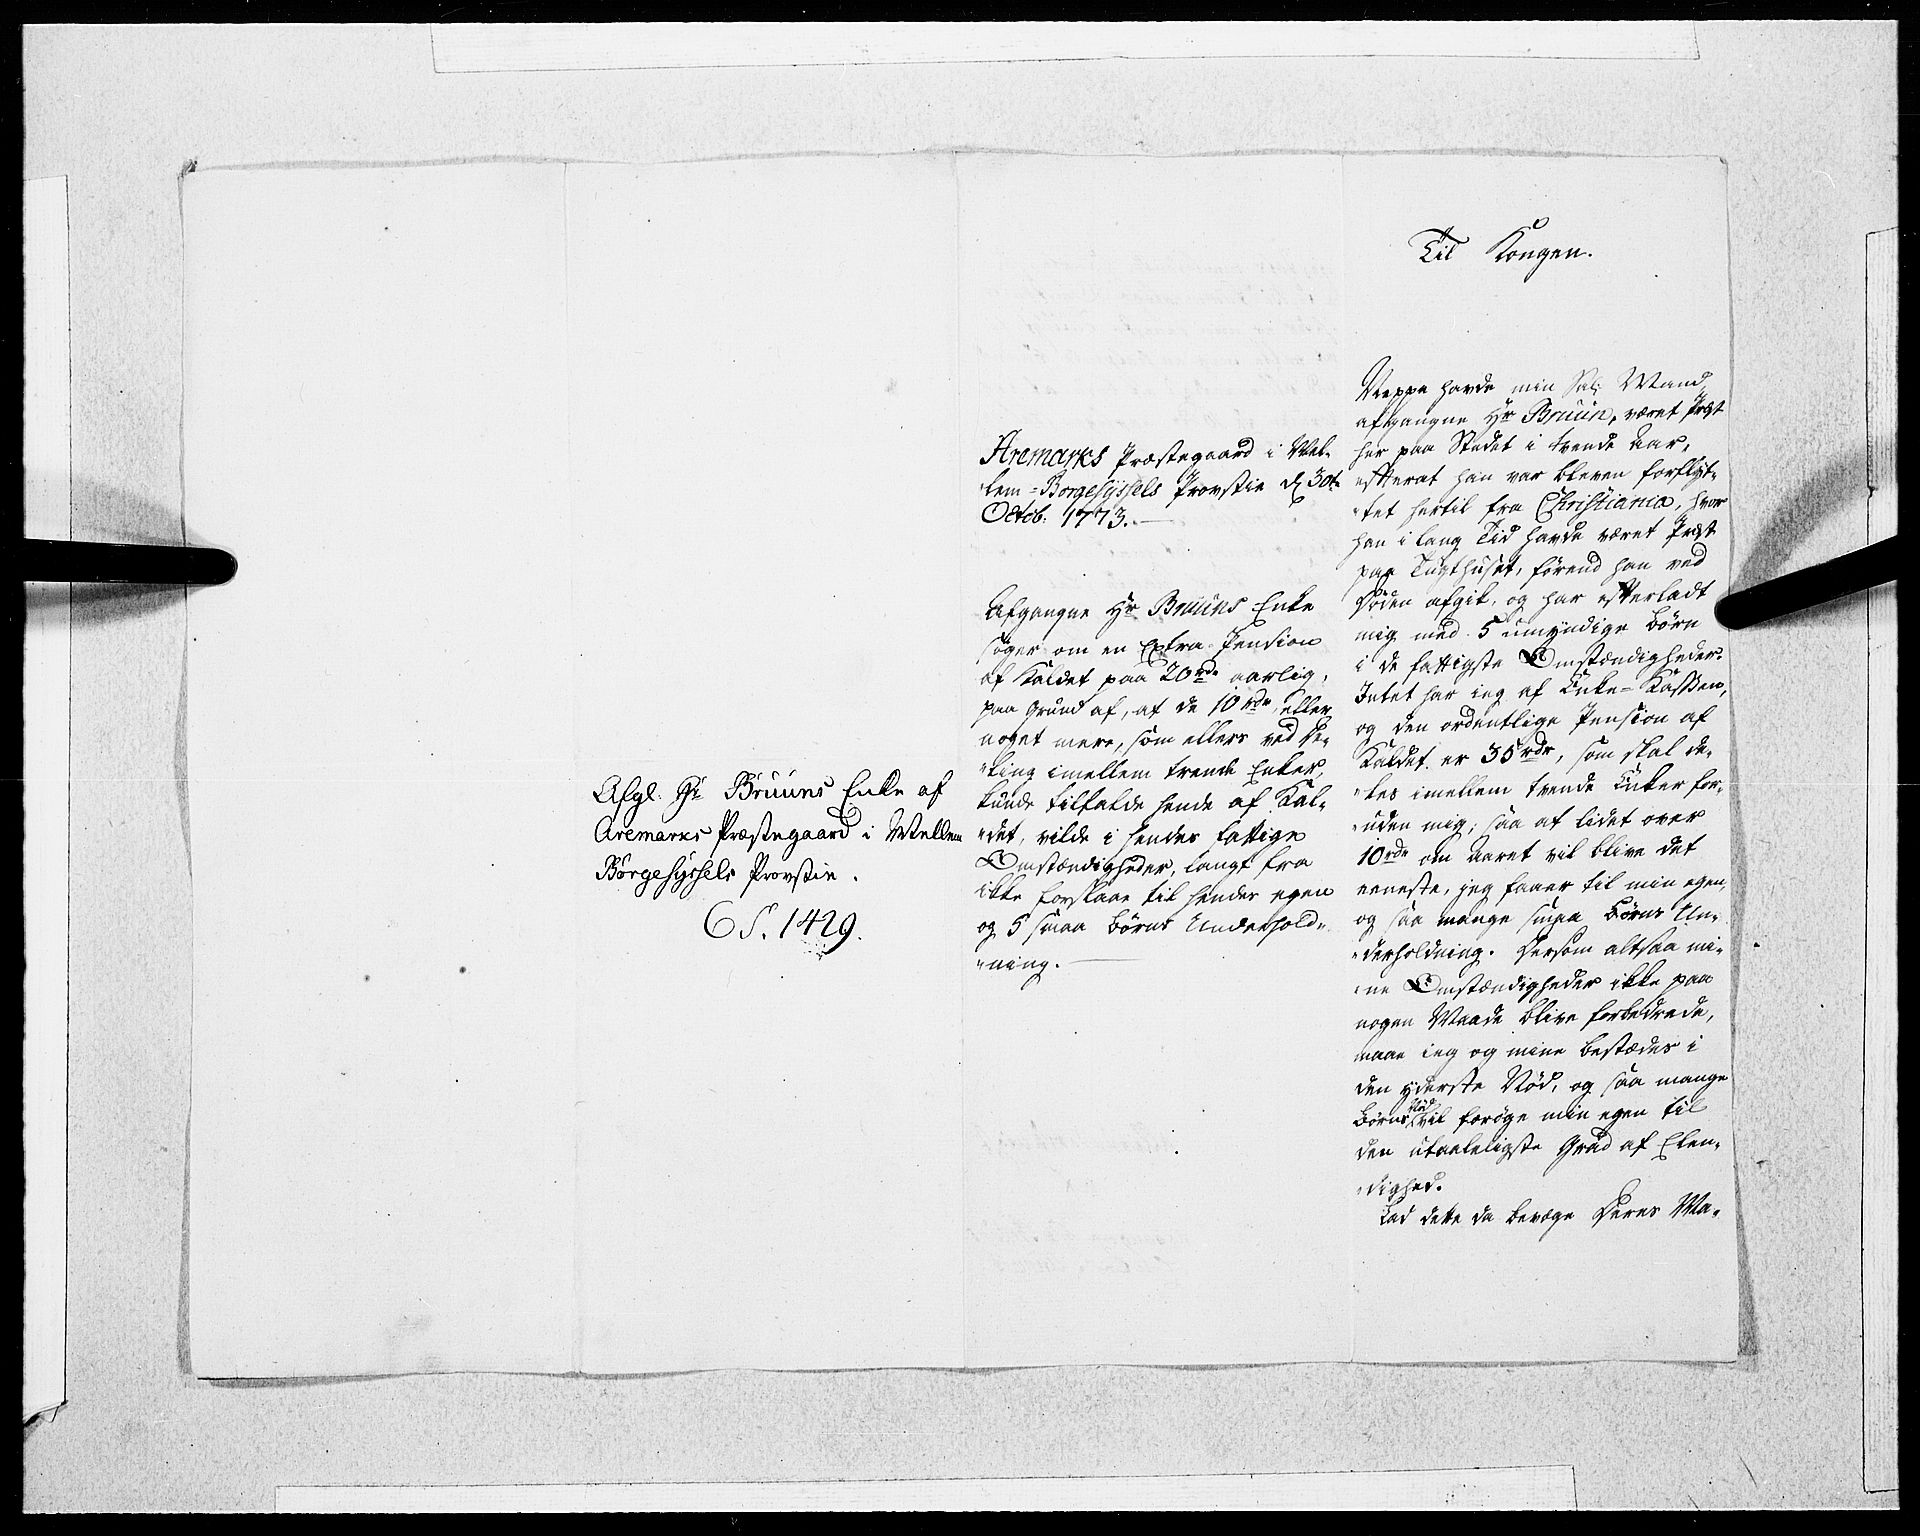 Afgl. Hr Bruuns Enke af
Aremarks Præstegaard i Mellem
Borgesyssels Provstie.
C S. 1429.
Aremarks Præstegaard i Mel-
lem-Borgesyssels Provstie d 30t
Octob: 1773.
Afgangne Hr Bruuns Enke
søger om en Extra Pension
af Kaldet paa 20 rdr aarlig,
paa Grund af, at de 10 rdr, eller
noget mere, som ellers ved De-
-ling imellem trende Enker,
kunde tilfalde hende af Kal-
-det, vilde i hendes fattige
Omstændigheder, langt fra
ikke forslaae til hendes egen
og 5 smaa Børns Underhold-
-ning.
Til Kongen.
Neppe havde min Sal: Mand,
afgangne Hr Bruun, været Præst
her paa Stedet i trende Aar,
efterat han var bleven forflyt-
-tet hertil fra Christiania, hvor
han i lang Tid havde været Præst
paa Tugthuset, førend han ved
Døden afgik, og har efterladt
mig med 5 umyndige Børn
i de fattigste Omstændigheder.
Intet har ieg af Enke-Kassen,
og den ordentlige Pension af
Kaldet er 35 rdr, som skal de-
-les imellem trende Enker for-
-uden mig; saa at lidet over
10 rdr om Aaret vil blive det
eeneste, jeg faaer til min egen,
og saa mange smaa Børns Un-
-derholdning. Dersom altsaa mi-
-ne Omstændigheder ikke paa
nogen Maade blive forbedrede,
maae ieg og mine bestædes i
den yderste Nød, og saa mange
Børns Nød vil forøge min egen til
den utaaleligste Grad af Elen-
-dighed.
Lad dette da bevæge Deres Ma-